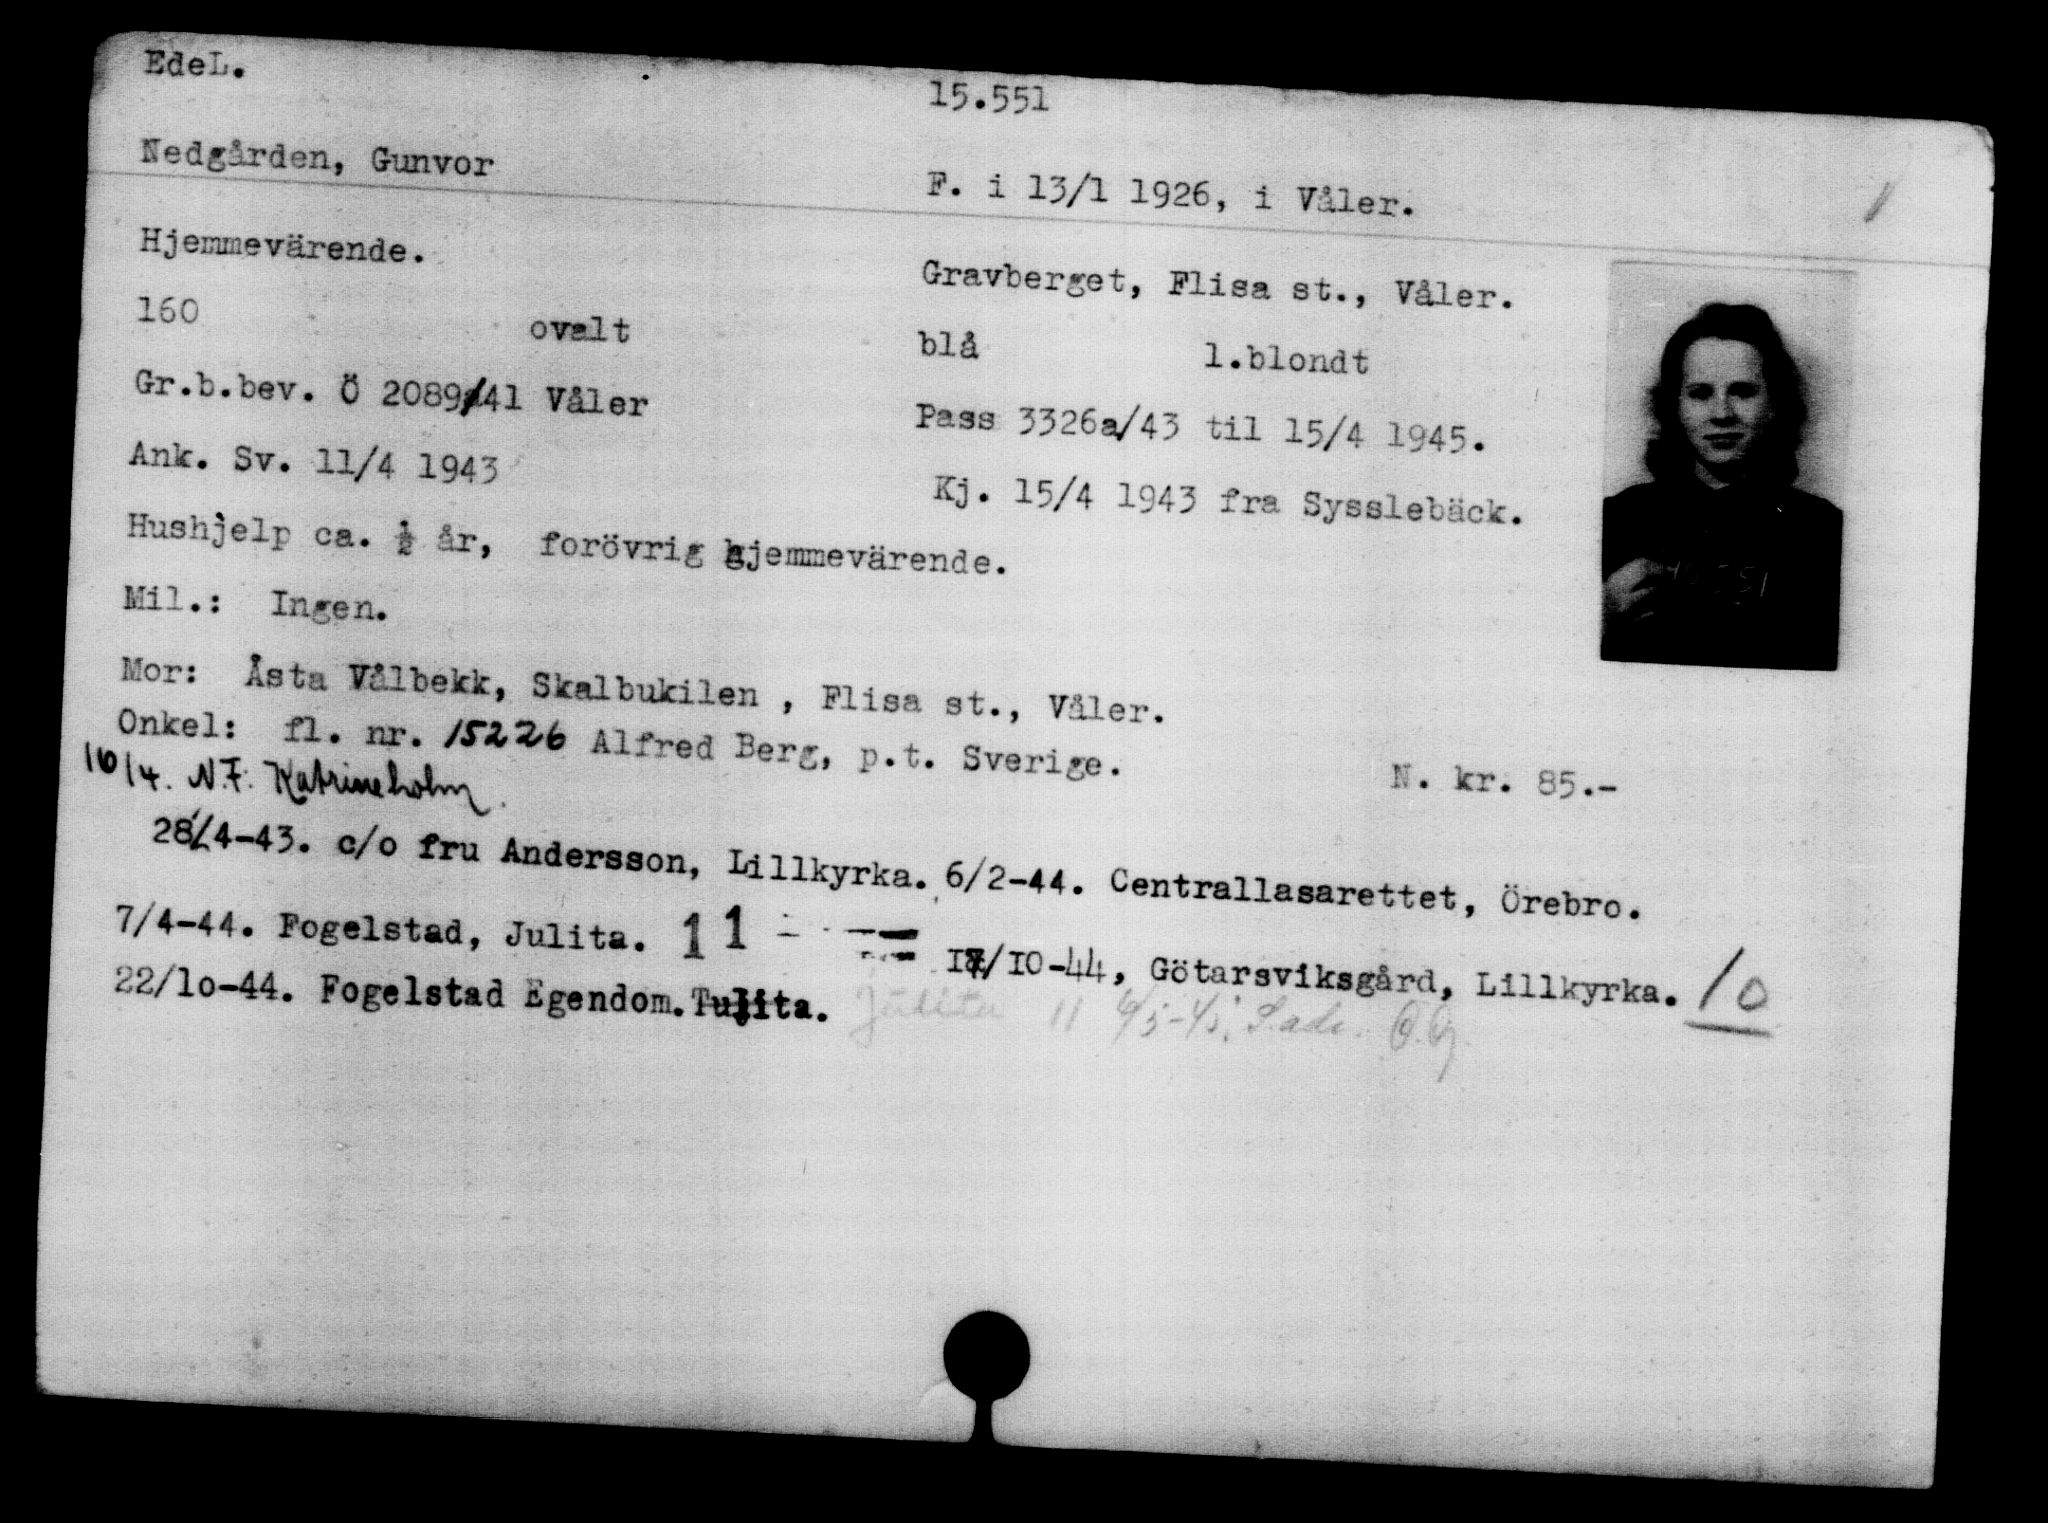 EdeL. 15.551
Nedgården, Gunvor F. i 13/1 1926, i Våler.
Hjemmevärende. Gravberget, Flisa st., Våler.
160 ovalt blå l.blondt
Gr.b.bev. Ö 2089/41 Våler Pass 3326a/43 til 15/4 1945.
Ank. Sv. 11/4 1943 Kj. 15/4 1943 fra Sysslebäck.
Hushjelp ca. ½ år, forövrig hjemmevärende.
Mil.: Ingen.
Mor: Åsta Vålbekk, Skalbukilen , Flisa st., Våler.
Onkel: fl. nr. 15226 Alfred Berg, p.t. Sverige. N. kr. 85.-
16/4. N.F. Katrineholm.
28/4-43. c/o fru Andersson, Lillkyrka. 6/2-44. Centrallasarettet, Örebro.
7/4-44. Fogelstad, Julita. 11 /10-44, Götarsviksgård, Lillkyrka. 10
22/10-44. Fogelstad Egendom. Julita. Julita 11 6/5-45. S.adr.